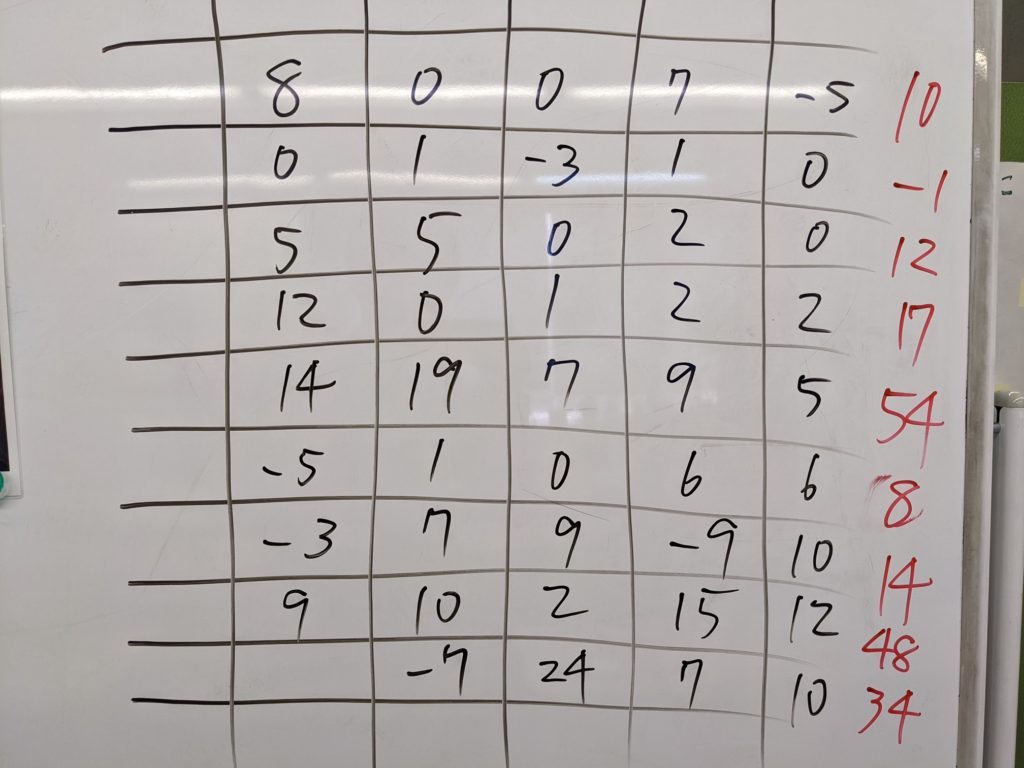 8 0 0 7 -5 10
0 1 -3 1 0 -1
5 5 0 2 0 12
12 0 1 2 2 17
14 19 7 9 5 54
-5 1 0 6 6 8
-3 7 9 -9 10 14
9 10 2 15 12 48
-7 24 7 10 34